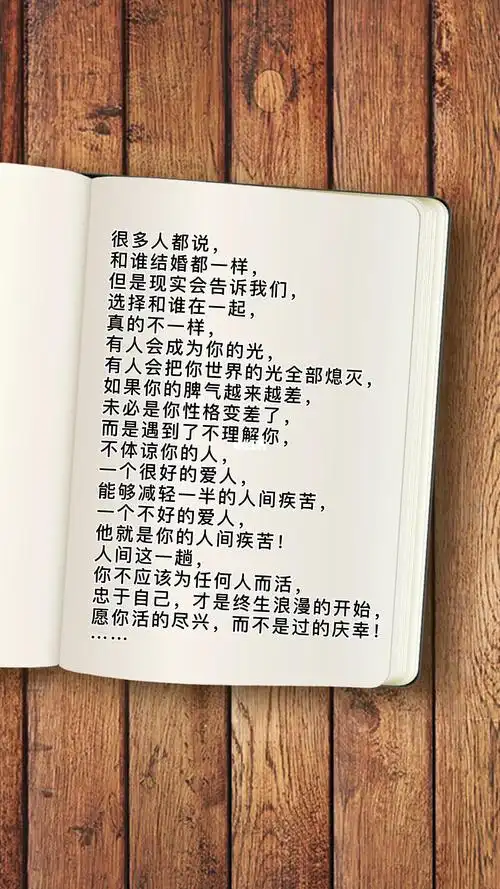 很多人都说，
和谁结婚都一样，
但是现实会告诉我们，
选择和谁在一起，
真的不一样，
有人会成为你的光，
有人会把你世界的光全部熄灭，
如果你的脾气越来越差，
未必是你性格变差了，
而是遇到了不理解你，
不体谅你的人，
一个很好的爱人，
能够减轻一半的人间疾苦，
一个不好的爱人，
他就是你的人间疾苦！
人间这一趟，
你不应该为任何人而活，
忠于自己，才是终生浪漫的开始，
愿你活的尽兴，而不是过的庆幸！
……